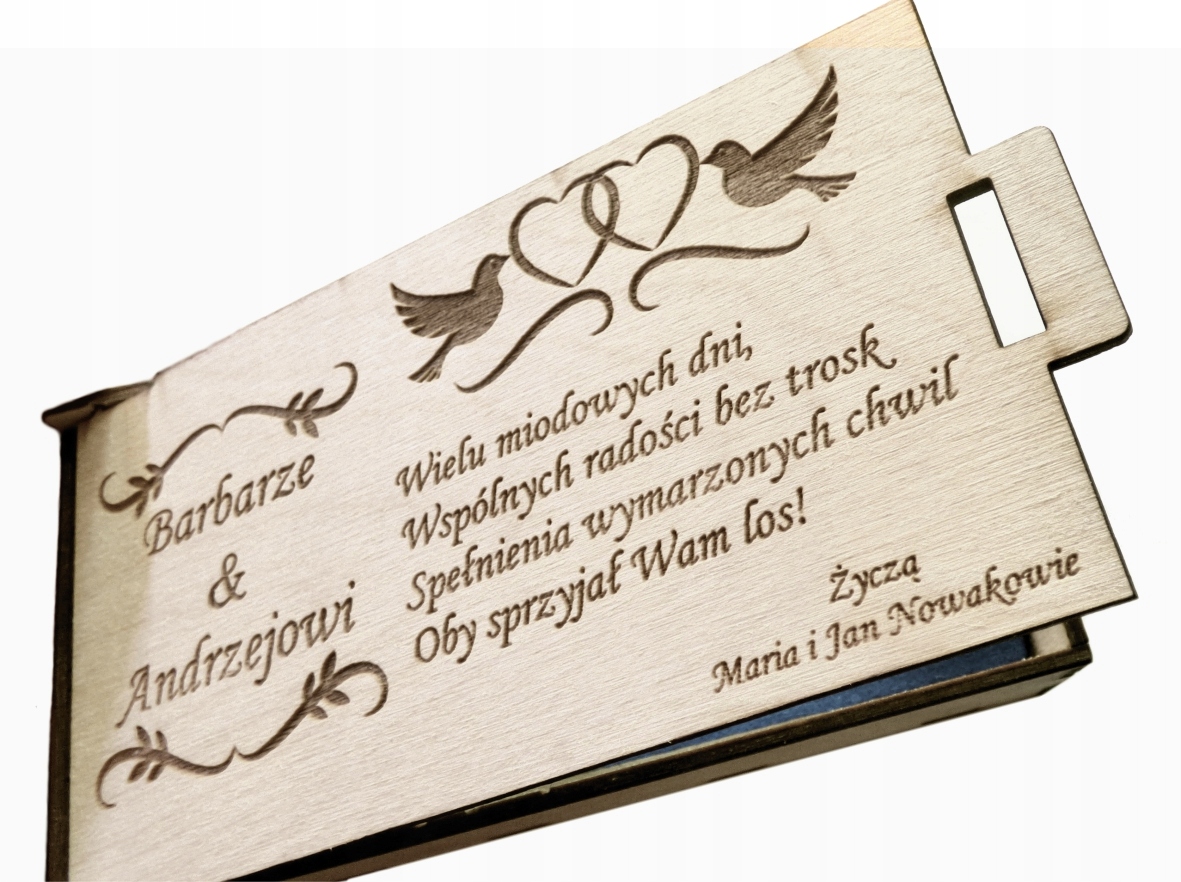 Barbarze
&
Andrzejowi
Wielu miodowych dni,
Wspólnych radości bez trosk
Spełnienia wymarzonych chwil
Oby sprzyjał Wam los!
Życzą
Maria i Jan Nowakowie